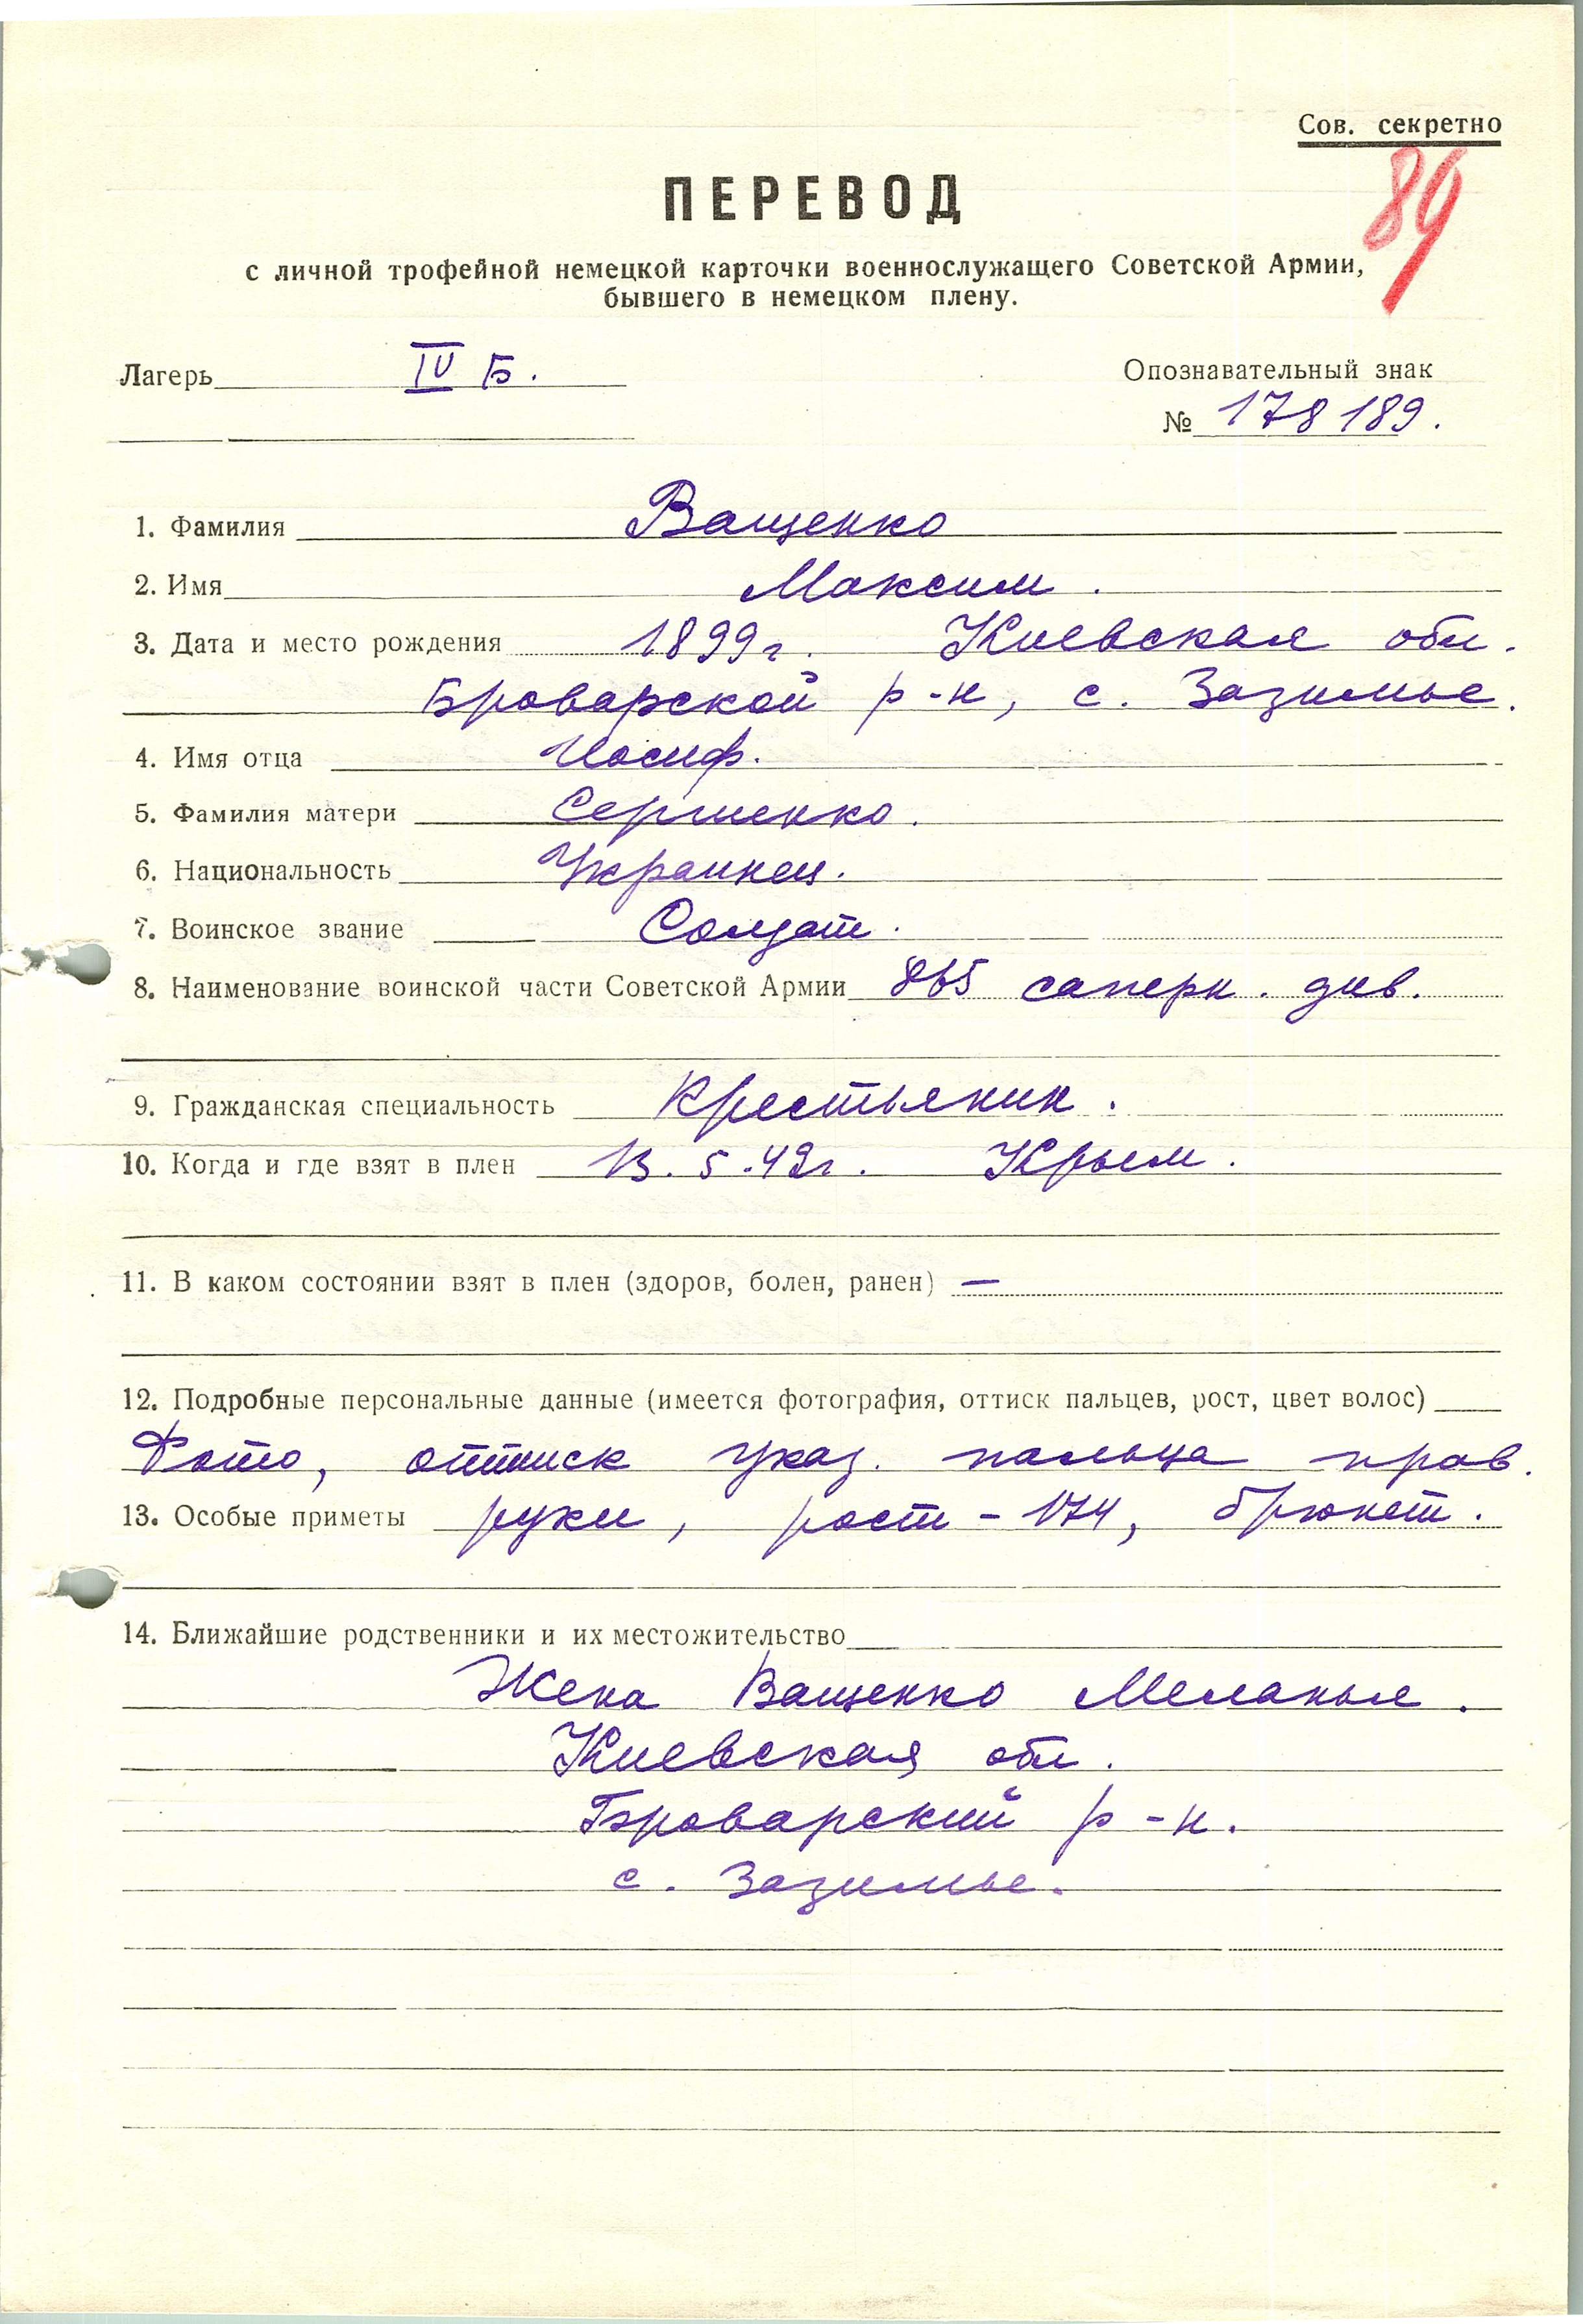 Сов. секретно
89
ПЕРЕВОД
с личной трофейной немецкой карточки военнослужащего Советской Армии,
бывшего в немецком плену.
Лагерь IV Б.
Опознавательный знак
№ 178189.
1. Фамилия Ващенко
2. Имя Максим.
3. Дата и место рождения 1899г. Киевская обл.
Броварской р-н, с. Зазимье.
4. Имя отца Иосиф.
5. Фамилия матери Сергиенко.
6. Национальность Украинец.
7. Воинское звание Солдат.
8. Наименование воинской части Советской Армии 865 саперн. див.
9. Гражданская специальность Крестьянин.
10. Когда и где взят в плен 13.5.42г. Крым.
11. В каком состоянии взят в плен (здоров, болен, ранен) —
12. Подробные персональные данные (имеется фотография, оттиск пальцев, рост, цвет волос)
Фото, оттиск указ. пальца прав.
13. Особые приметы руки, рост - 174, брюнет.
14. Ближайшие родственники и их местожительство
Жена Ващенко Меланья.
Киевская обл.
Броварский р-н.
с. Зазимье.